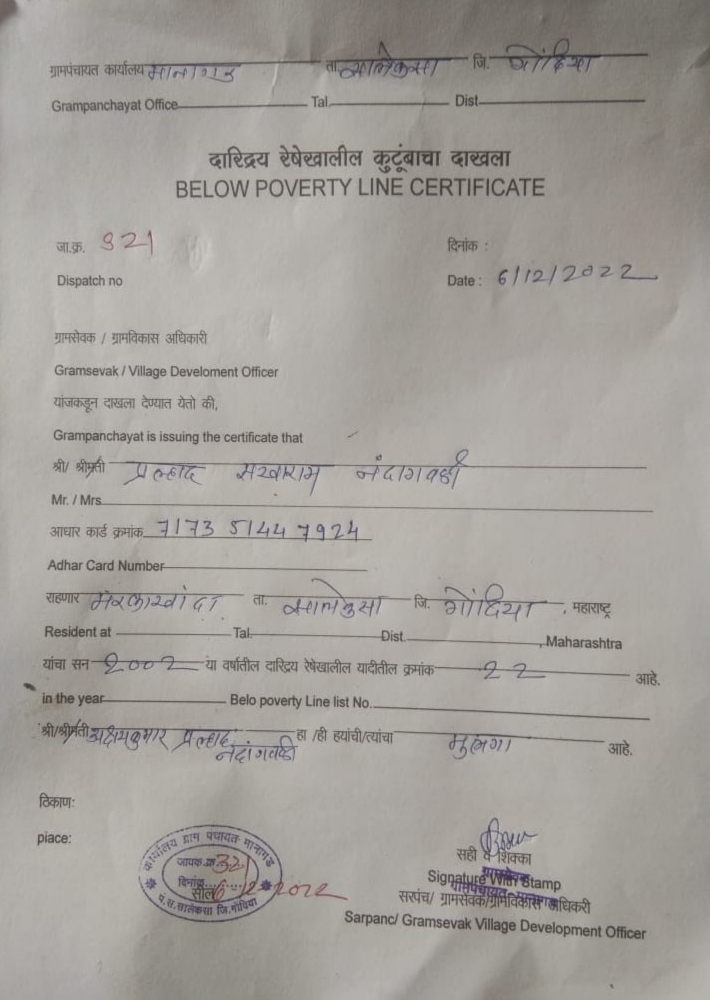 ग्रामपंचायत कार्यालय मानागड ता. सालेकसा जि. गोंदिया
Grampanchayat Office Tal. Dist
दारिद्रय रेषेखालील कुटूंबाचा दाखला
BELOW POVERTY LINE CERTIFICATE
जा.क्र. 321 दिनांक :
Dispatch no Date : 6/12/2022
ग्रामसेवक / ग्रामविकास अधिकारी
Gramsevak / Village Develoment Officer
यांजकडून दाखला देण्यात येतो की,
Grampanchayat is issuing the certificate that
श्री/ श्रीमती प्रल्हाद सखाराम नंदागवळी
Mr. / Mrs
आधार कार्ड क्रमांक 7173 5144 7924
Adhar Card Number
राहणार मरकाखांदा ता. सालेकसा जि. गोंदिया , महाराष्ट्र
Resident at Tal. Dist. , Maharashtra
यांचा सन 2002 या वर्षातील दारिद्रय रेषेखालील यादीतील क्रमांक 22 आहे.
in the year Belo poverty Line list No.
श्री/श्रीमती अक्षयकुमार प्रल्हाद नंदागवळी हा /ही हयांची/त्यांचा मुलगा आहे.
ठिकाण:
piace:
कार्यालय ग्राम पंचायत मानागड
जावक.क्र. 321
दिनांक 6/12/2022
सील
पं.स.सालेकसा जि.गोंदिया
सही व शिक्का
Signature With Stamp
सरपंच/ ग्रामसेवक/ग्रामविकास अधिकरी
Sarpanc/ Gramsevak Village Development Officer